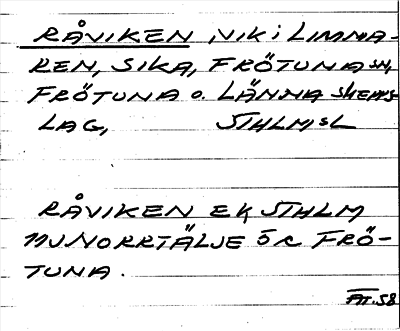 RÅVIKEN, VIK i LIMMA-
REN, SIKA, FRÖTUNA SN,
FRÖTUNA o. LÄNNA SKEPPS-
LAG, STHLMSL
RÅVIKEN EK STHLM
11J NORRTÄLJE ÖR FRÖ-
TUNA.
58